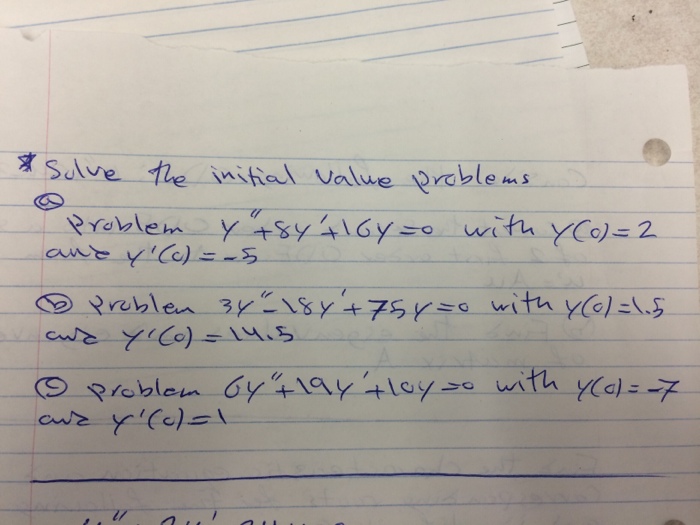 * Solve the initial value problems
(a)
problem y"+8y'+16y=0 with y(0)=2
and y'(0)=-5
(b) problem 3y"-18y'+75y=0 with y(0)=1.5
and y'(0)=14.5
(c) problem 6y"+19y'+10y=0 with y(0)=-7
and y'(0)=1